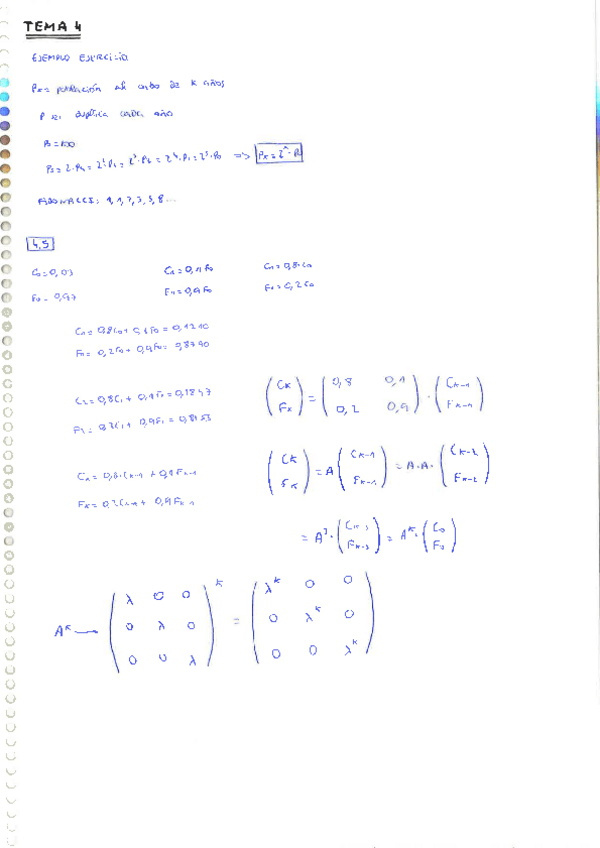 TEMA 4
EJEMPLO EJERCICIO
Pk = población al cabo de k años
se duplica cada año
P0 = 100
=> Pk = 2^k · P0
FIBONACCI: 1, 1, 2, 3, 5, 8...
4.5
C0 = 0,03 C1 = 0,1F0 C1 = 0,8·C0
F0 = 0,97 F1 = 0,9F0 F1 = 0,2C0
C1 = 0,8C0 + 0,1F0 = 0,1210
F1 = 0,2C0 + 0,9F0 = 0,8790
C2 = 0,8C1 + 0,1F1 = 0,1847
F2 = 0,2C1 + 0,9F1 = 0,8153
Ck = 0,8·Ck-1 + 0,1Fk-1
Fk = 0,2Ck-1 + 0,9Fk-1
(Ck Fk) = (0,8 0,1 0,2 0,9) · (Ck-1 Fk-1)
(Ck Fk) = A (Ck-1 Fk-1) = A·A· (Ck-2 Fk-2)
= A³ · (Ck-3 Fk-3) = A^k · (C0 F0)
A^k → (λ 0 0
0 λ 0
0 0 λ)^k = (λ^k 0 0
0 λ^k 0
0 0 λ^k)